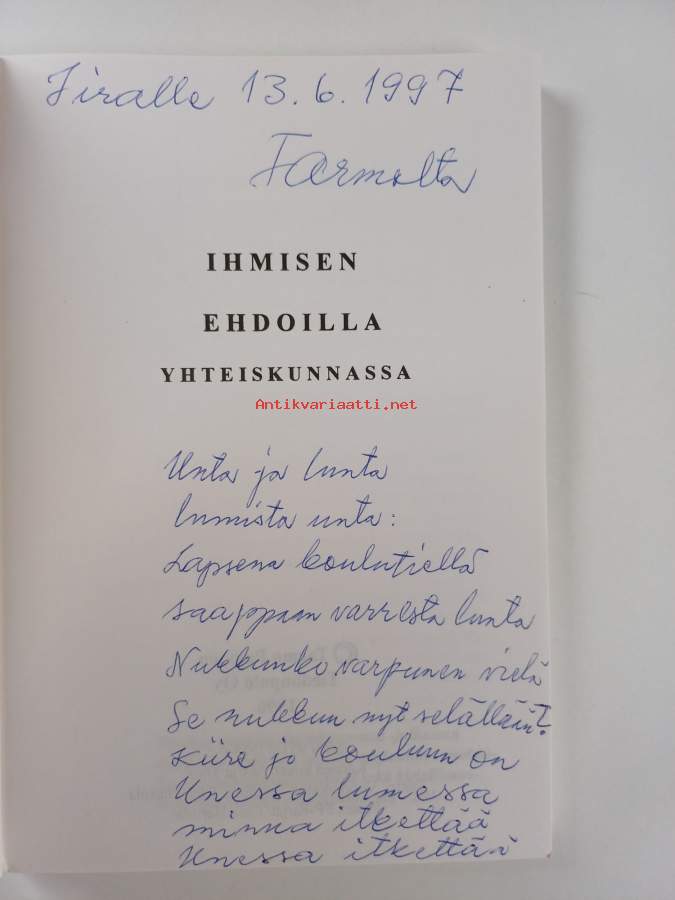 Iiralle 13.6.1997
Tarmolta
IHMISEN
EHDOILLA
YHTEISKUNNASSA
Antikvariaatti.net
Unta ja lunta
lumista unta:
Lapsena koulutiellä
saappaan varresta lunta
Nukkuuko varpunen vielä
Se nukkuu nyt selällään?
Kiire jo kouluun on
Unessa lumessa
minua itkettää
Unessa itkettää